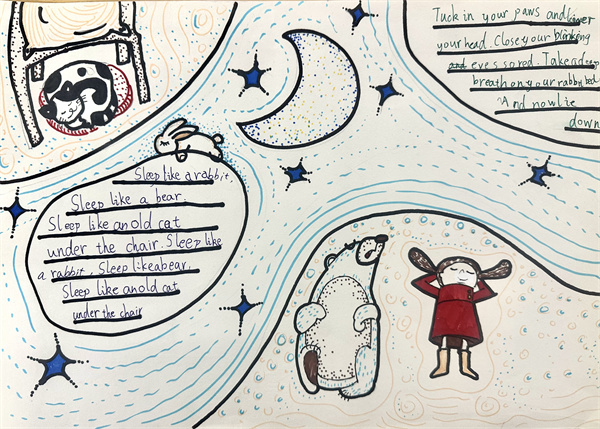 Tuck in your paws and lower
your head. Close your blinking
and eyes so red. Take a deep
breath on your rabby bed
And now lie
down
Sleep like a rabbit,
Sleep like a bear.
Sleep like an old cat
under the chair. Sleep like
a rabbit. Sleep like a bear.
Sleep like an old cat
under the chair